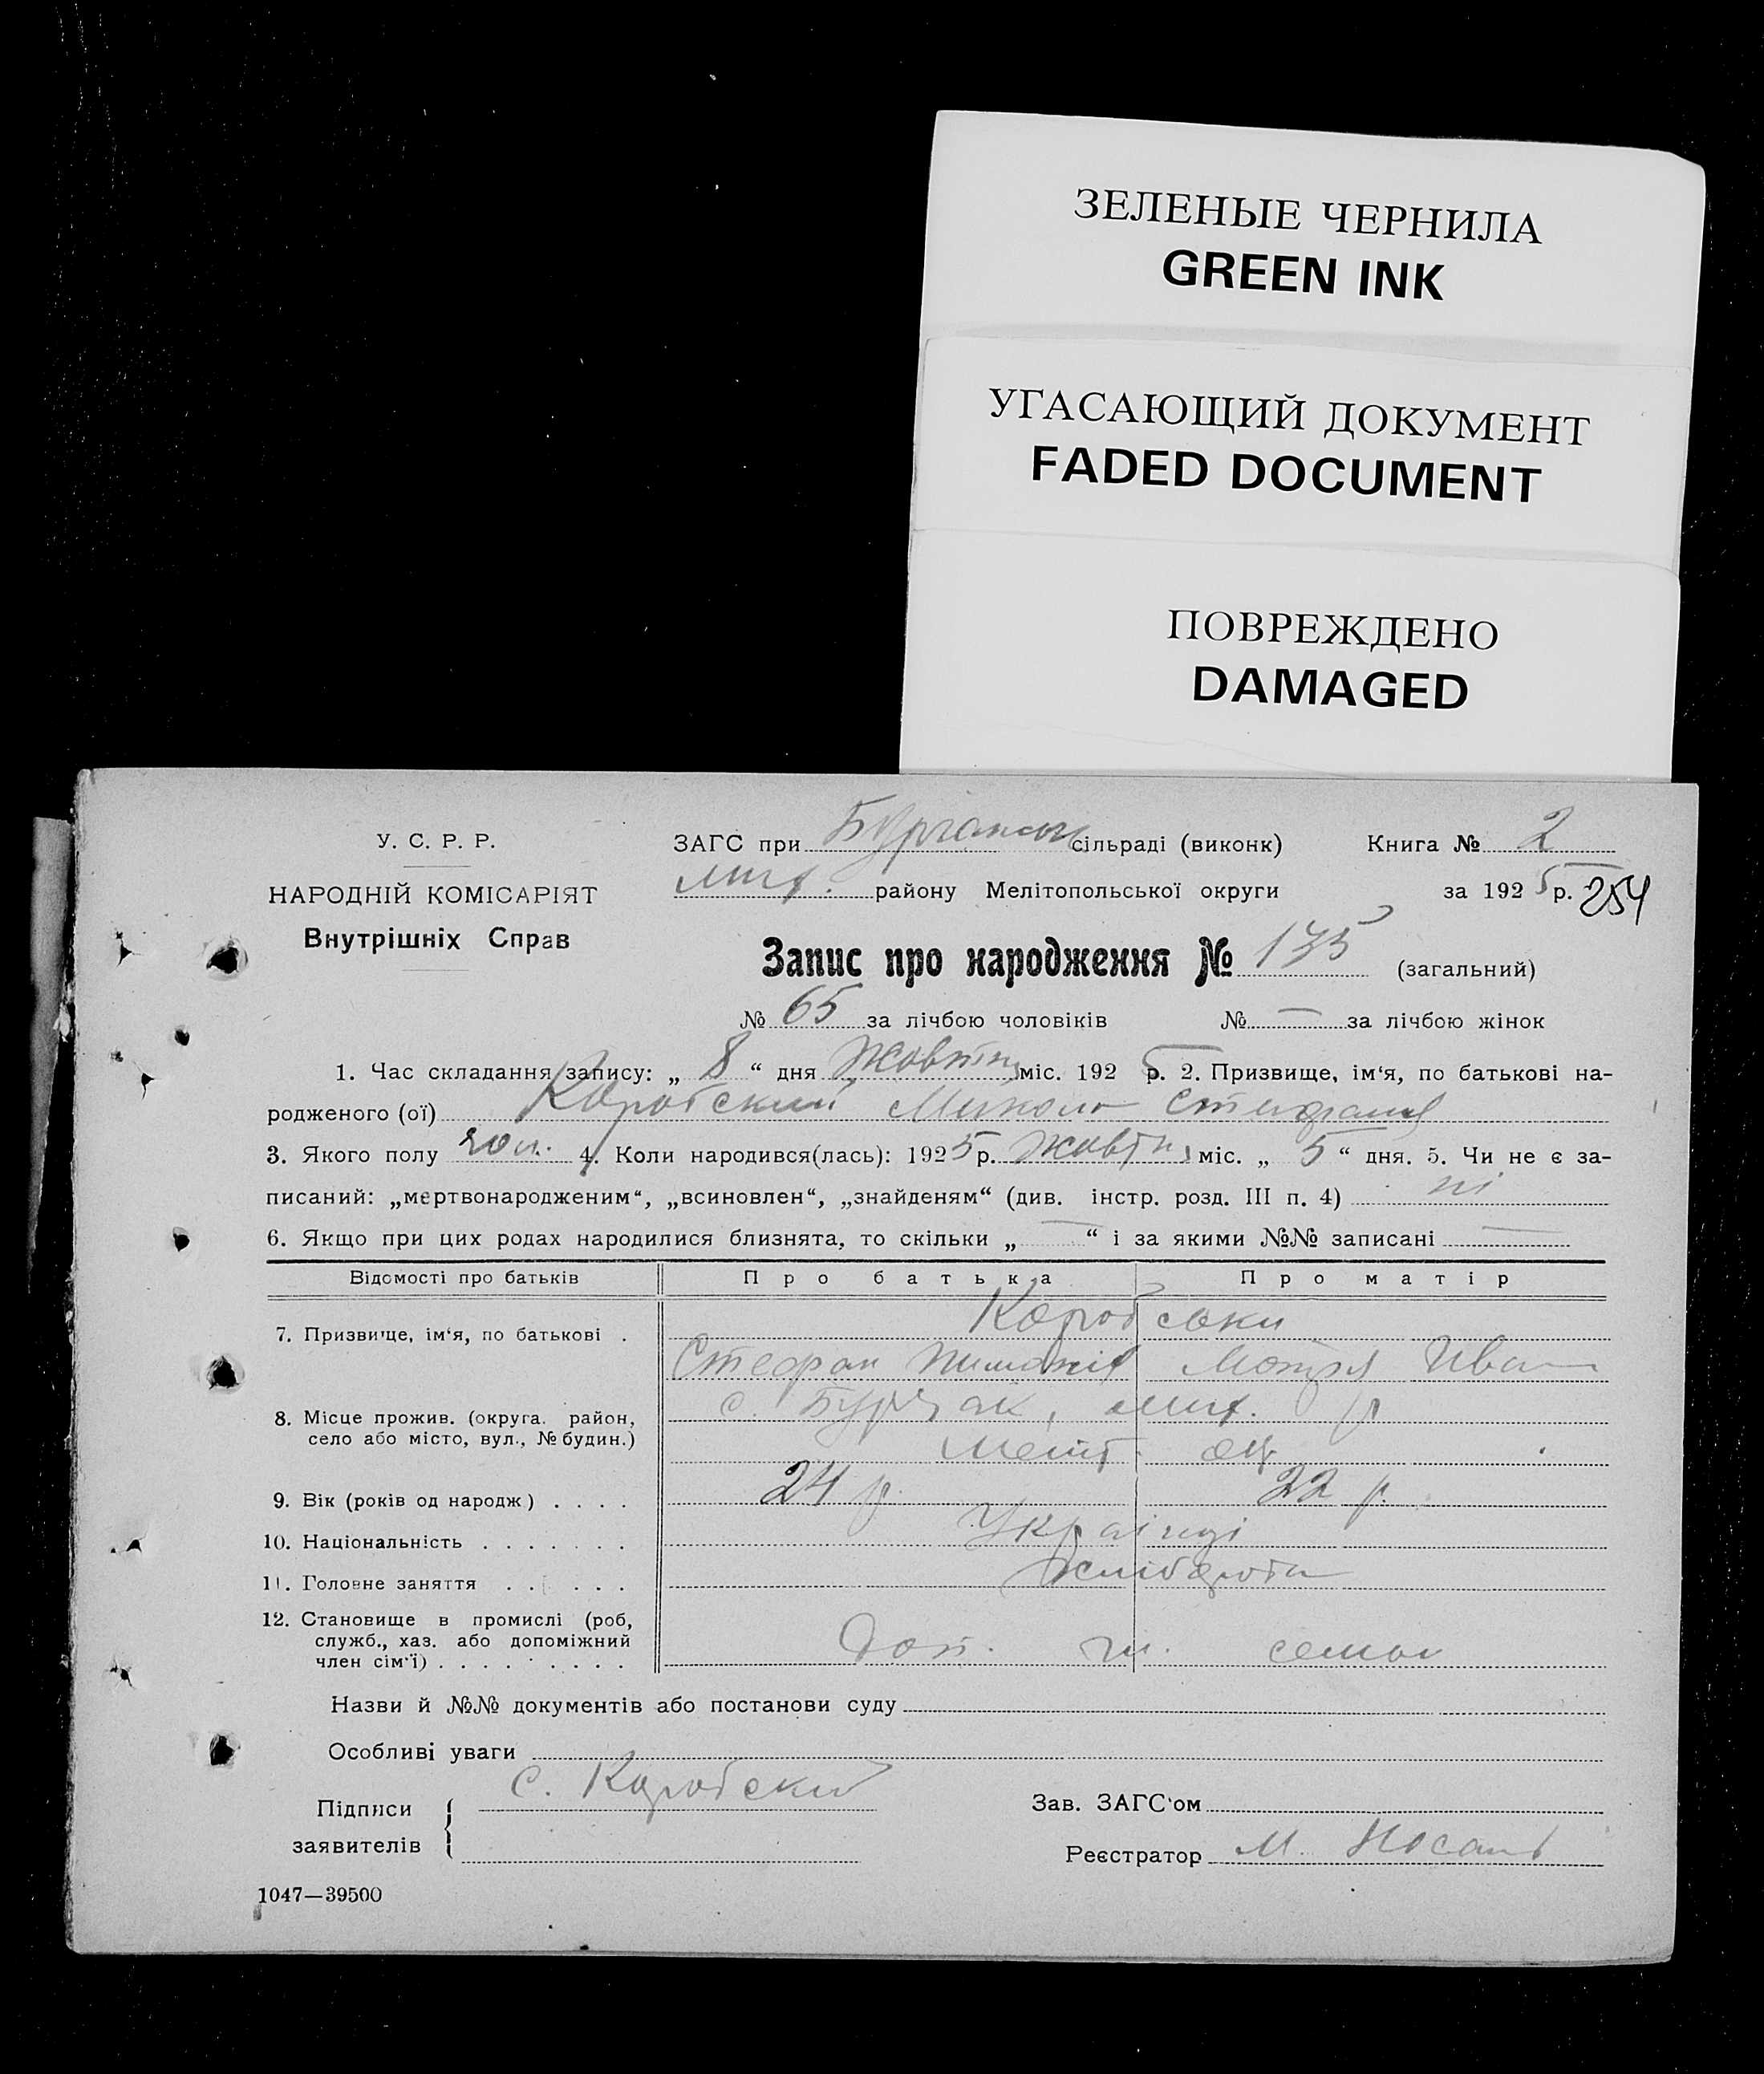 ЗЕЛЕНЫЕ ЧЕРНИЛА
GREEN INK
УГАСАЮЩИЙ ДОКУМЕНТ
FADED DOCUMENT
ПОВРЕЖДЕНО
DAMAGED
У. С. Р. Р.
НАРОДНІЙ КОМІСАРІЯТ
Внутрішніх Справ
ЗАГС при сільраді (виконк) Книга № 2
мих. району Мелітопольської округи за 1925 р. 254
Запис про народження № 135 (загальний)
№ 65 за лічбою чоловіків № — за лічбою жінок
1. Час складання запису: „ 8 “ дня Жовтня міс. 1925 р. 2. Призвище, ім‘я, по батькові на-
родженого (ої) Коробский Микола
3. Якого полу чол. 4. Коли народився(лась): 1925 р. Жовтня міс. „ 5 “ дня. 5. Чи не є за-
писаний: „мертвонародженим“, „всиновлен“, „знайденям“ (див. інстр. розд. III п. 4) ні
6. Якщо при цих родах народилися близнята, то скільки „ — “ і за якими №№ записані —
Відомості про батьків Про батька Про матір
7. Призвище, ім‘я, по батькові . Коробськи
Стефан Мотря Иван
8. Місце прожив. (округа, район, с. Бурчак, мих. р
село або місто, вул., № будин.) Меліт. ок
9. Вік (років од народж) . . . . 24 р. 22 р.
10. Національність . . . . . . . Українці
11. Головне заняття . . . . . Хлібороби
12. Становище в промислі (роб,
служб., хаз. або допоміжний
член сім‘ї) . . . . . . . . . Доп. чл. семьи
Назви й №№ документів або постанови суду
Особливі уваги
Підписи С. Коробский Зав. ЗАГС‘ом
заявителів Реєстратор М. Носань
1047—39500